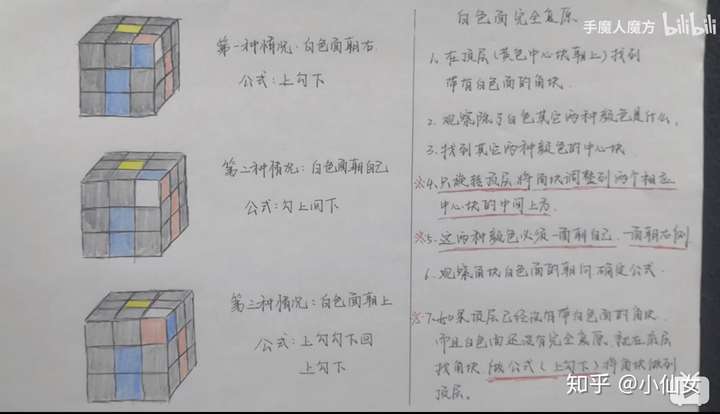 手魔人魔方 bilibili
第一种情况：白色面朝右
公式：上勾下
第二种情况：白色面朝自己
公式：勾上回下
第三种情况：白色面朝上
公式：上勾勾下回
上勾下
白色面完全复原
1、在顶层（黄色中心块朝上）找到
带有白色面的角块.
2、观察除了白色其它两种颜色是什么.
3、找到其它两种颜色的中心块.
※4、只旋转顶层将角块调整到两个相应
中心块的中间上方.
※5、这两种颜色必须一面朝自己、一面朝右侧
6、观察角块白色面的朝向确定公式.
※7、如果顶层已经没有带白色面的角块.
而且白色面还没有完全复原.就在底层
找角块.做公式（上勾下）将角块做到
顶层。
知乎 @小仙女